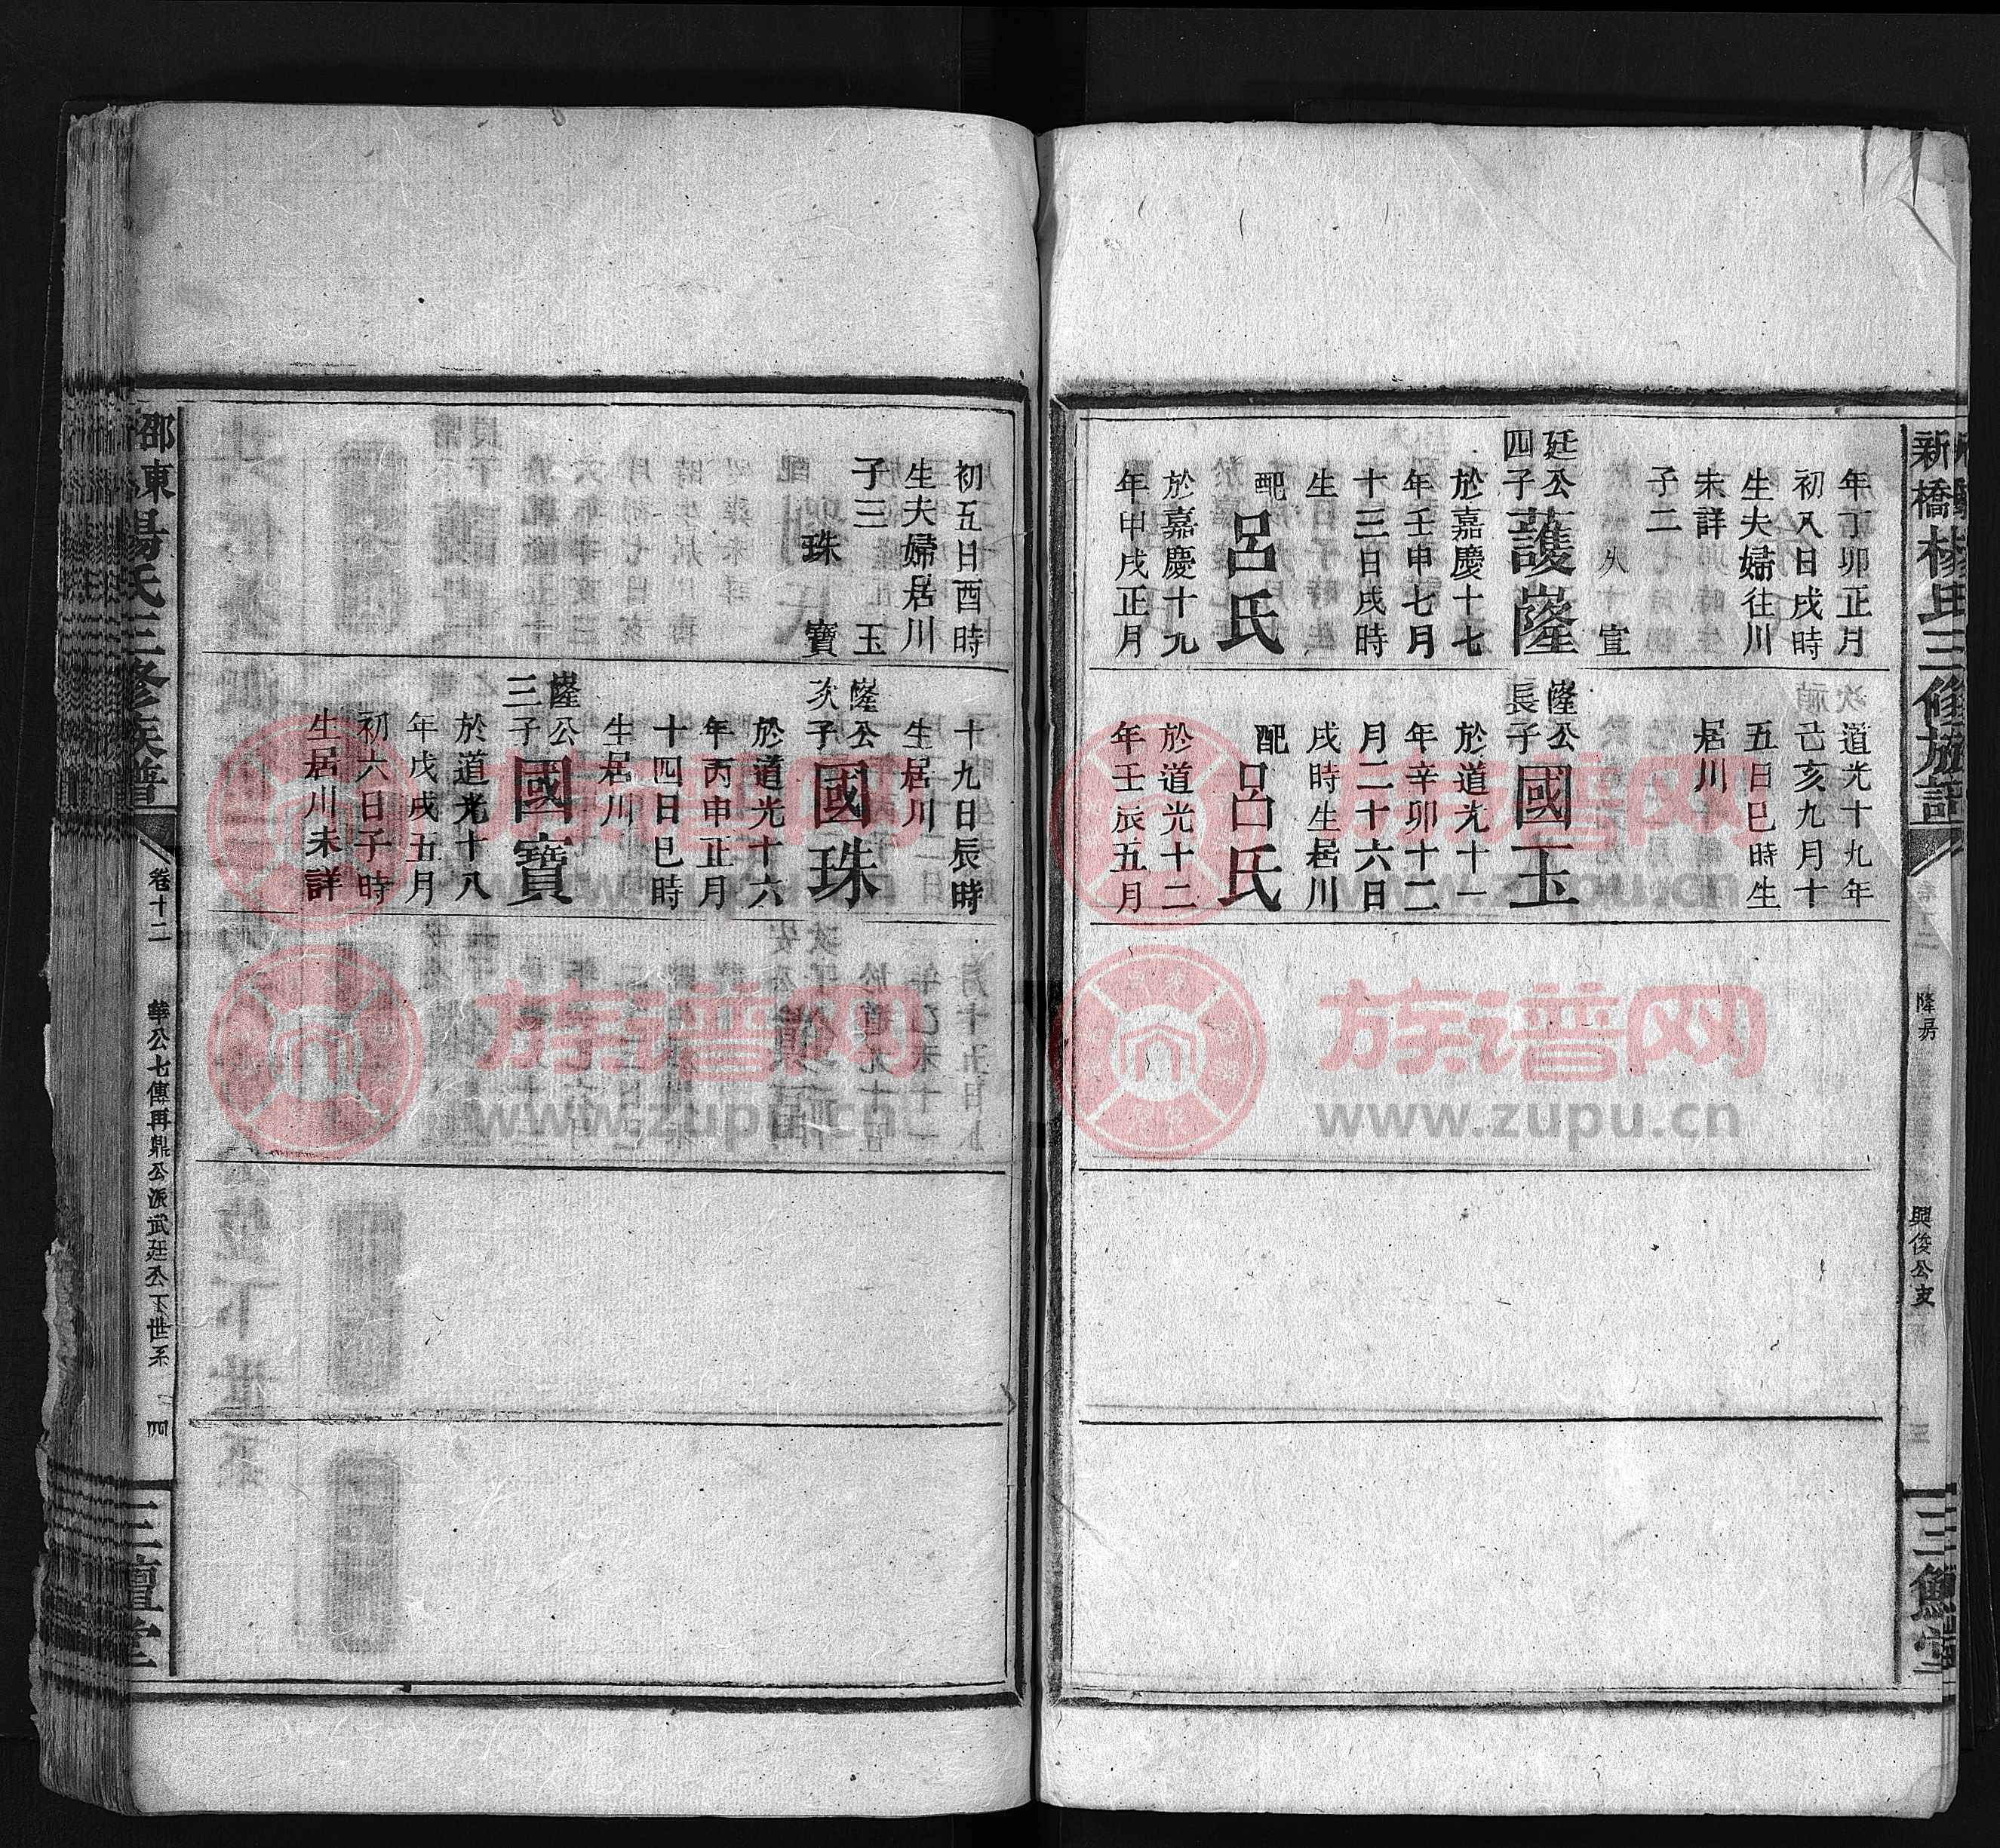 新橋楊氏三修族譜
隆房
興俊公支
三
三鱣堂
年丁卯正月
初八日戌時
生夫婦往川
未詳
子二
宣
廷公四子
護嶐
於嘉慶十七
年壬申七月
十三日戌時
生
配
呂氏
於嘉慶十九
年甲戌正月
道光十九年
己亥九月十
五日巳時生
居川
嶐公長子
國玉
於道光十一
年辛卯十二
月二十六日
戌時生居川
配
呂氏
於道光十二
年壬辰五月
初五日酉時
生夫婦居川
子三 玉
珠 寶
十九日辰時
生居川
嶐公次子
國珠
於道光十六
年丙申正月
十四日巳時
生居川
嶐公三子
國寶
於道光十八
年戊戌五月
初六日子時
生居川未詳
邵東楊氏三修族譜
卷十二
華公七傳再鼎公派武廷公下世系
四
三鱣堂
族谱网
www.zupu.cn
族谱网
www.zupu.cn